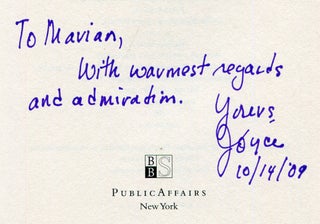 To Marian,
With warmest regards
and admiration.
Yours,
Joyce
10/14/'09
B
B S
PUBLICAFFAIRS
New York